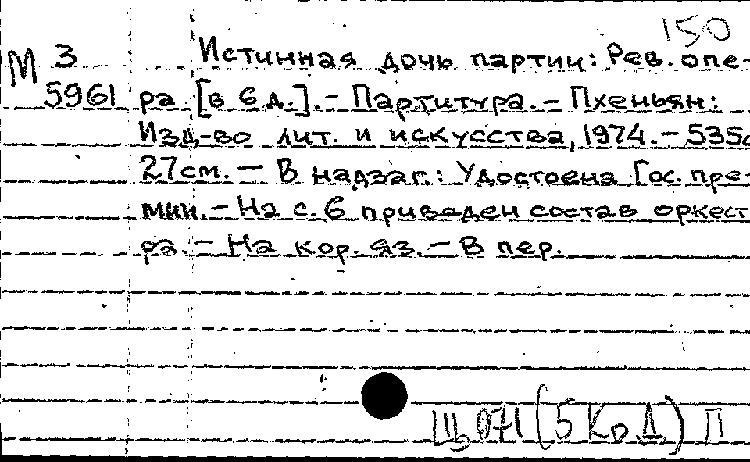 150
М 3 Истинная дочь партии: Рев. опе-
5961 ра [в 6 д.]. – Партитура. – Пхеньян:
Изд-во лит. и искусства, 1974. – 535с
27см. – В надзаг.: Удостоена Гос. пре-
мии. – На с. 6 приведен состав оркест
ра. – На кор. яз. – В пер.
Щ071(5КоД) П